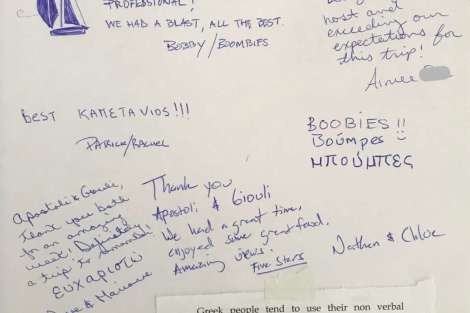 PROFESSIONAL!
WE HAD A BLAST, ALL THE BEST.
BOBBY/BOOMBIES
host and
exceeding our
expectations for
this trip!
Aimee
BEST ΚΑΠΕΤΑVIOS!!!
PATRICK/RACHEL
BOOBIES!!
Βούmpes
ΜΠΟΥΜΠΕΣ
Apostoli & Giouli,
Thank you both
for an amazing
week! Definitely
a trip to remember!
ΕΥΧΑΡΙΣΤΩ
& Marianne
Thank you
Apostoli & Giouli
We had a great time,
enjoyed some great food.
Amazing views.
Five Stars
Nathan & Chloe
Greek people tend to use their non verbal